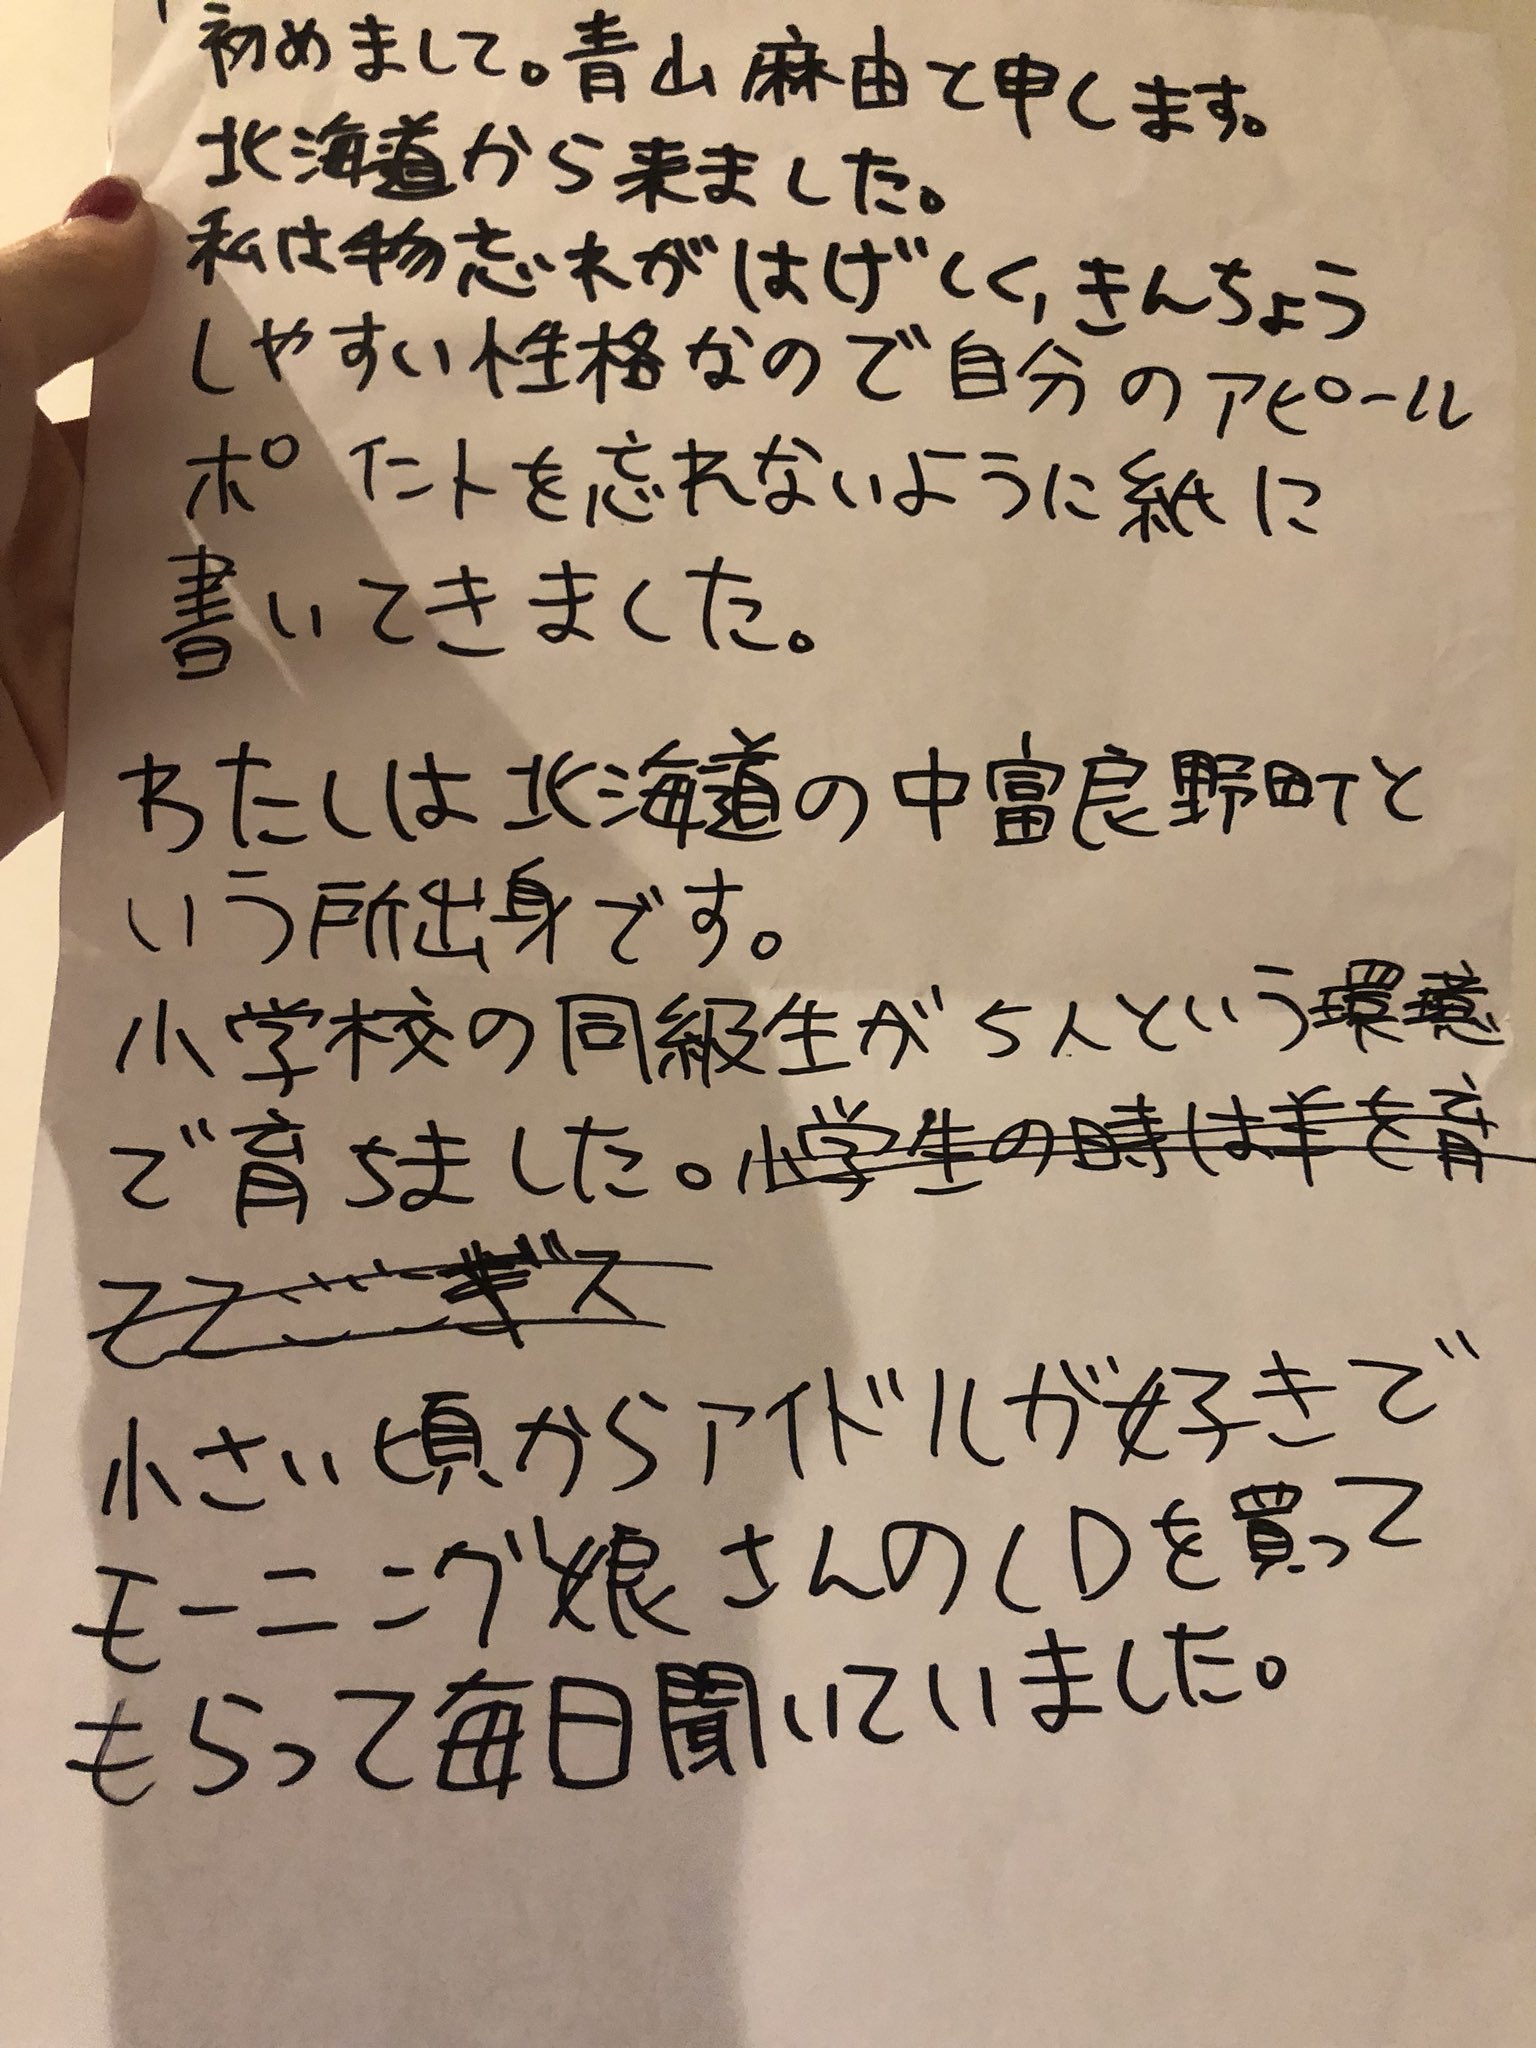 初めまして。青山麻由と申します。
北海道から来ました。
私は物忘れがはげしく、きんちょう
しやすい性格なので自分のアピール
ポイントを忘れないように紙に
書いてきました。
わたしは北海道の中富良野町と
いう所出身です。
小学校の同級生が5人という環境
で育ちました。小学生の時は羊を育
小さい頃からアイドルが好きで
モーニング娘さんのCDを買って
もらって毎日聞いていました。